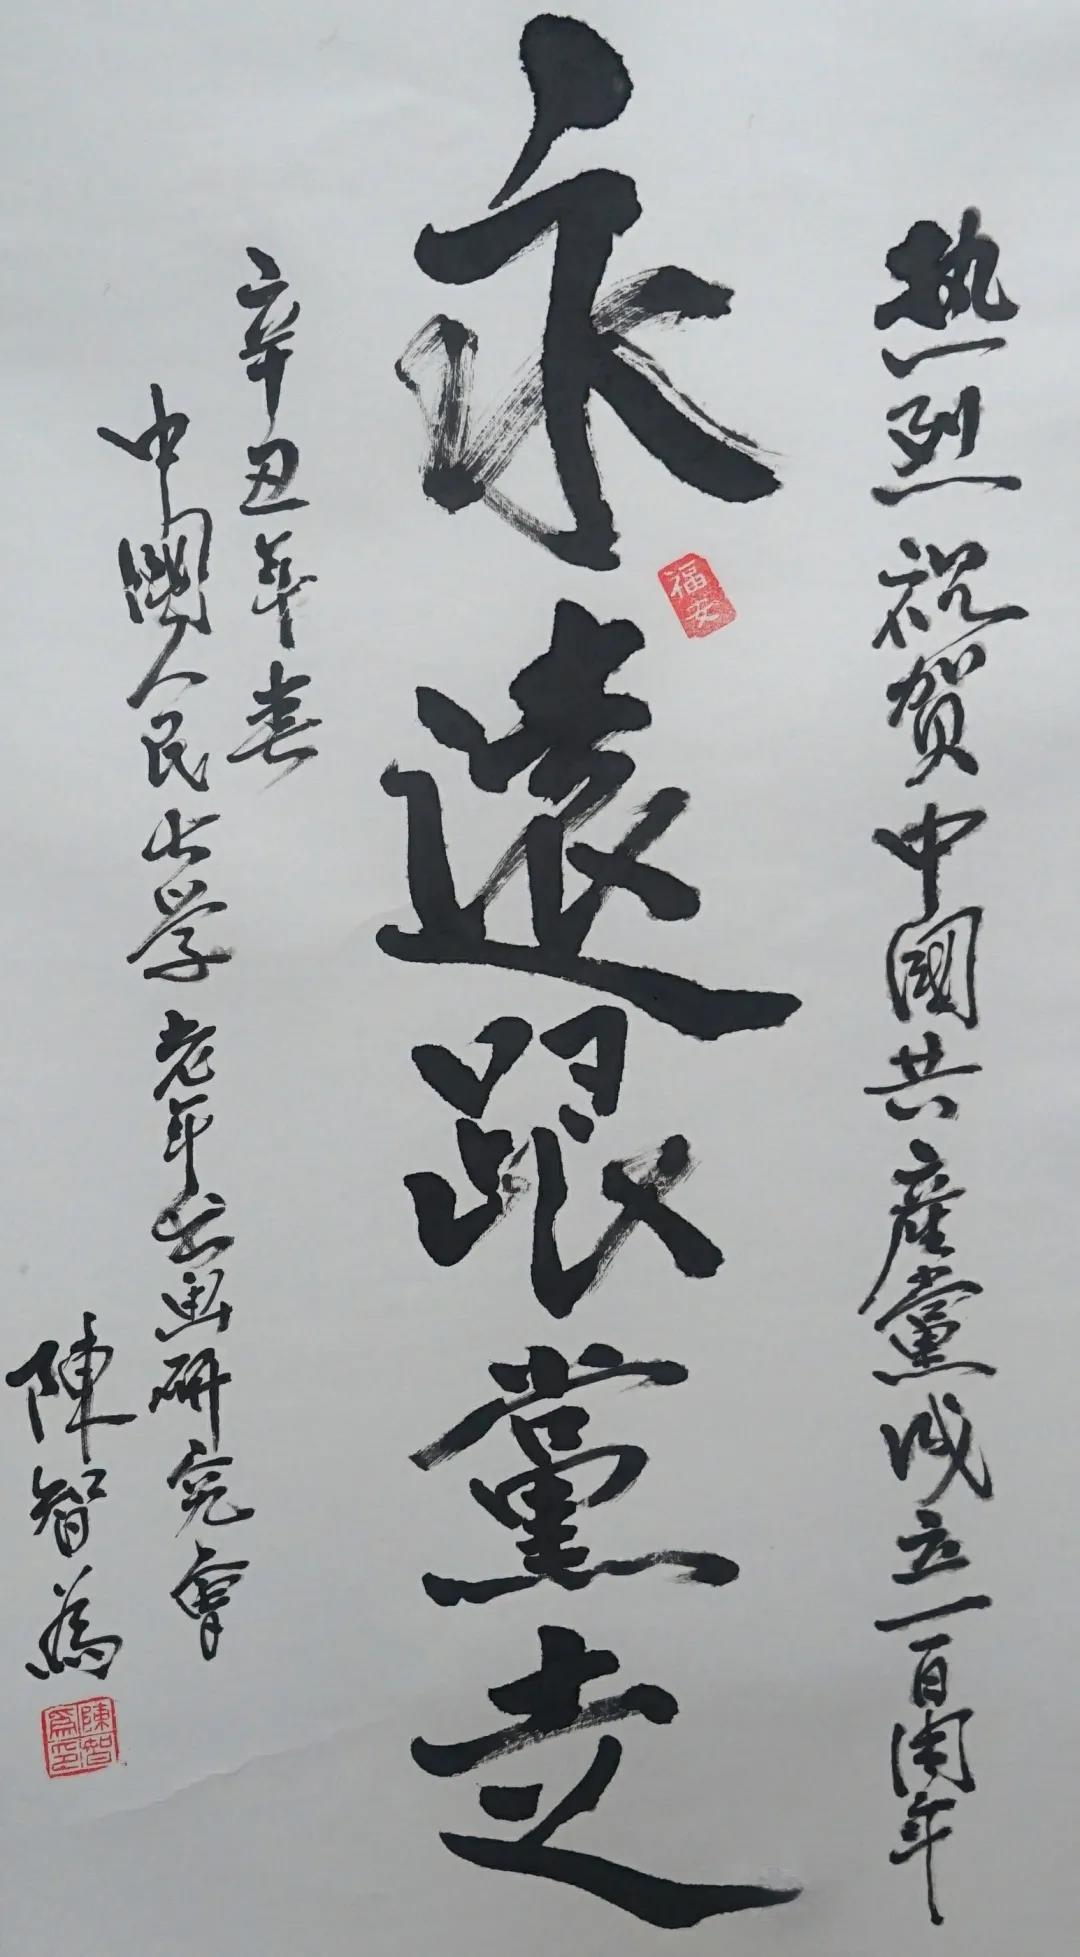 热烈祝贺中國共産黨成立一百周年
永遠跟黨走
福安
辛丑年春
中國人民大学老年书画研究會
陳智為
陳智為印